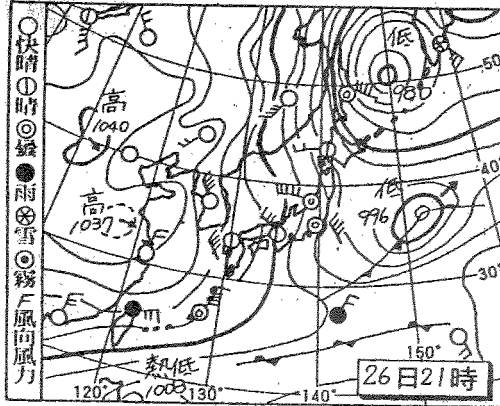 快晴
晴
曇
雨
雪
霧
風向風力
高
1040
高
1037
低
980
低
996
熱低
1008
50°
40°
30°
120°
130°
140°
150°
26日21時